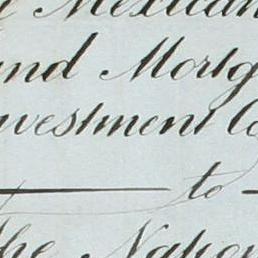 Mexican
and Mortg
nvestment Co
to
The Nation